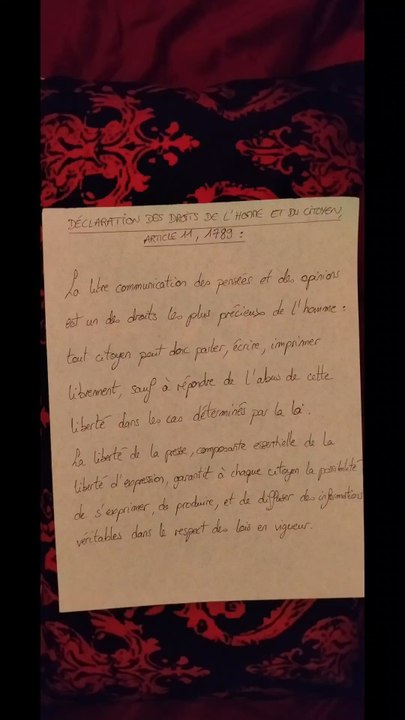 DÉCLARATION DES DROITS DE L'HOMME ET DU CITOYEN,
ARTICLE 11, 1789 :
La libre communication des pensées et des opinions
est un des droits les plus précieux de l'homme :
tout citoyen peut donc parler, écrire, imprimer
librement, sauf à répondre de l'abus de cette
liberté dans les cas déterminés par la loi.
La liberté de la presse, composante essentielle de la
liberté d'expression, garantit à chaque citoyen la possibilité
de s'exprimer, de produire, et de diffuser des informations
véritables dans le respect des lois en vigueur.